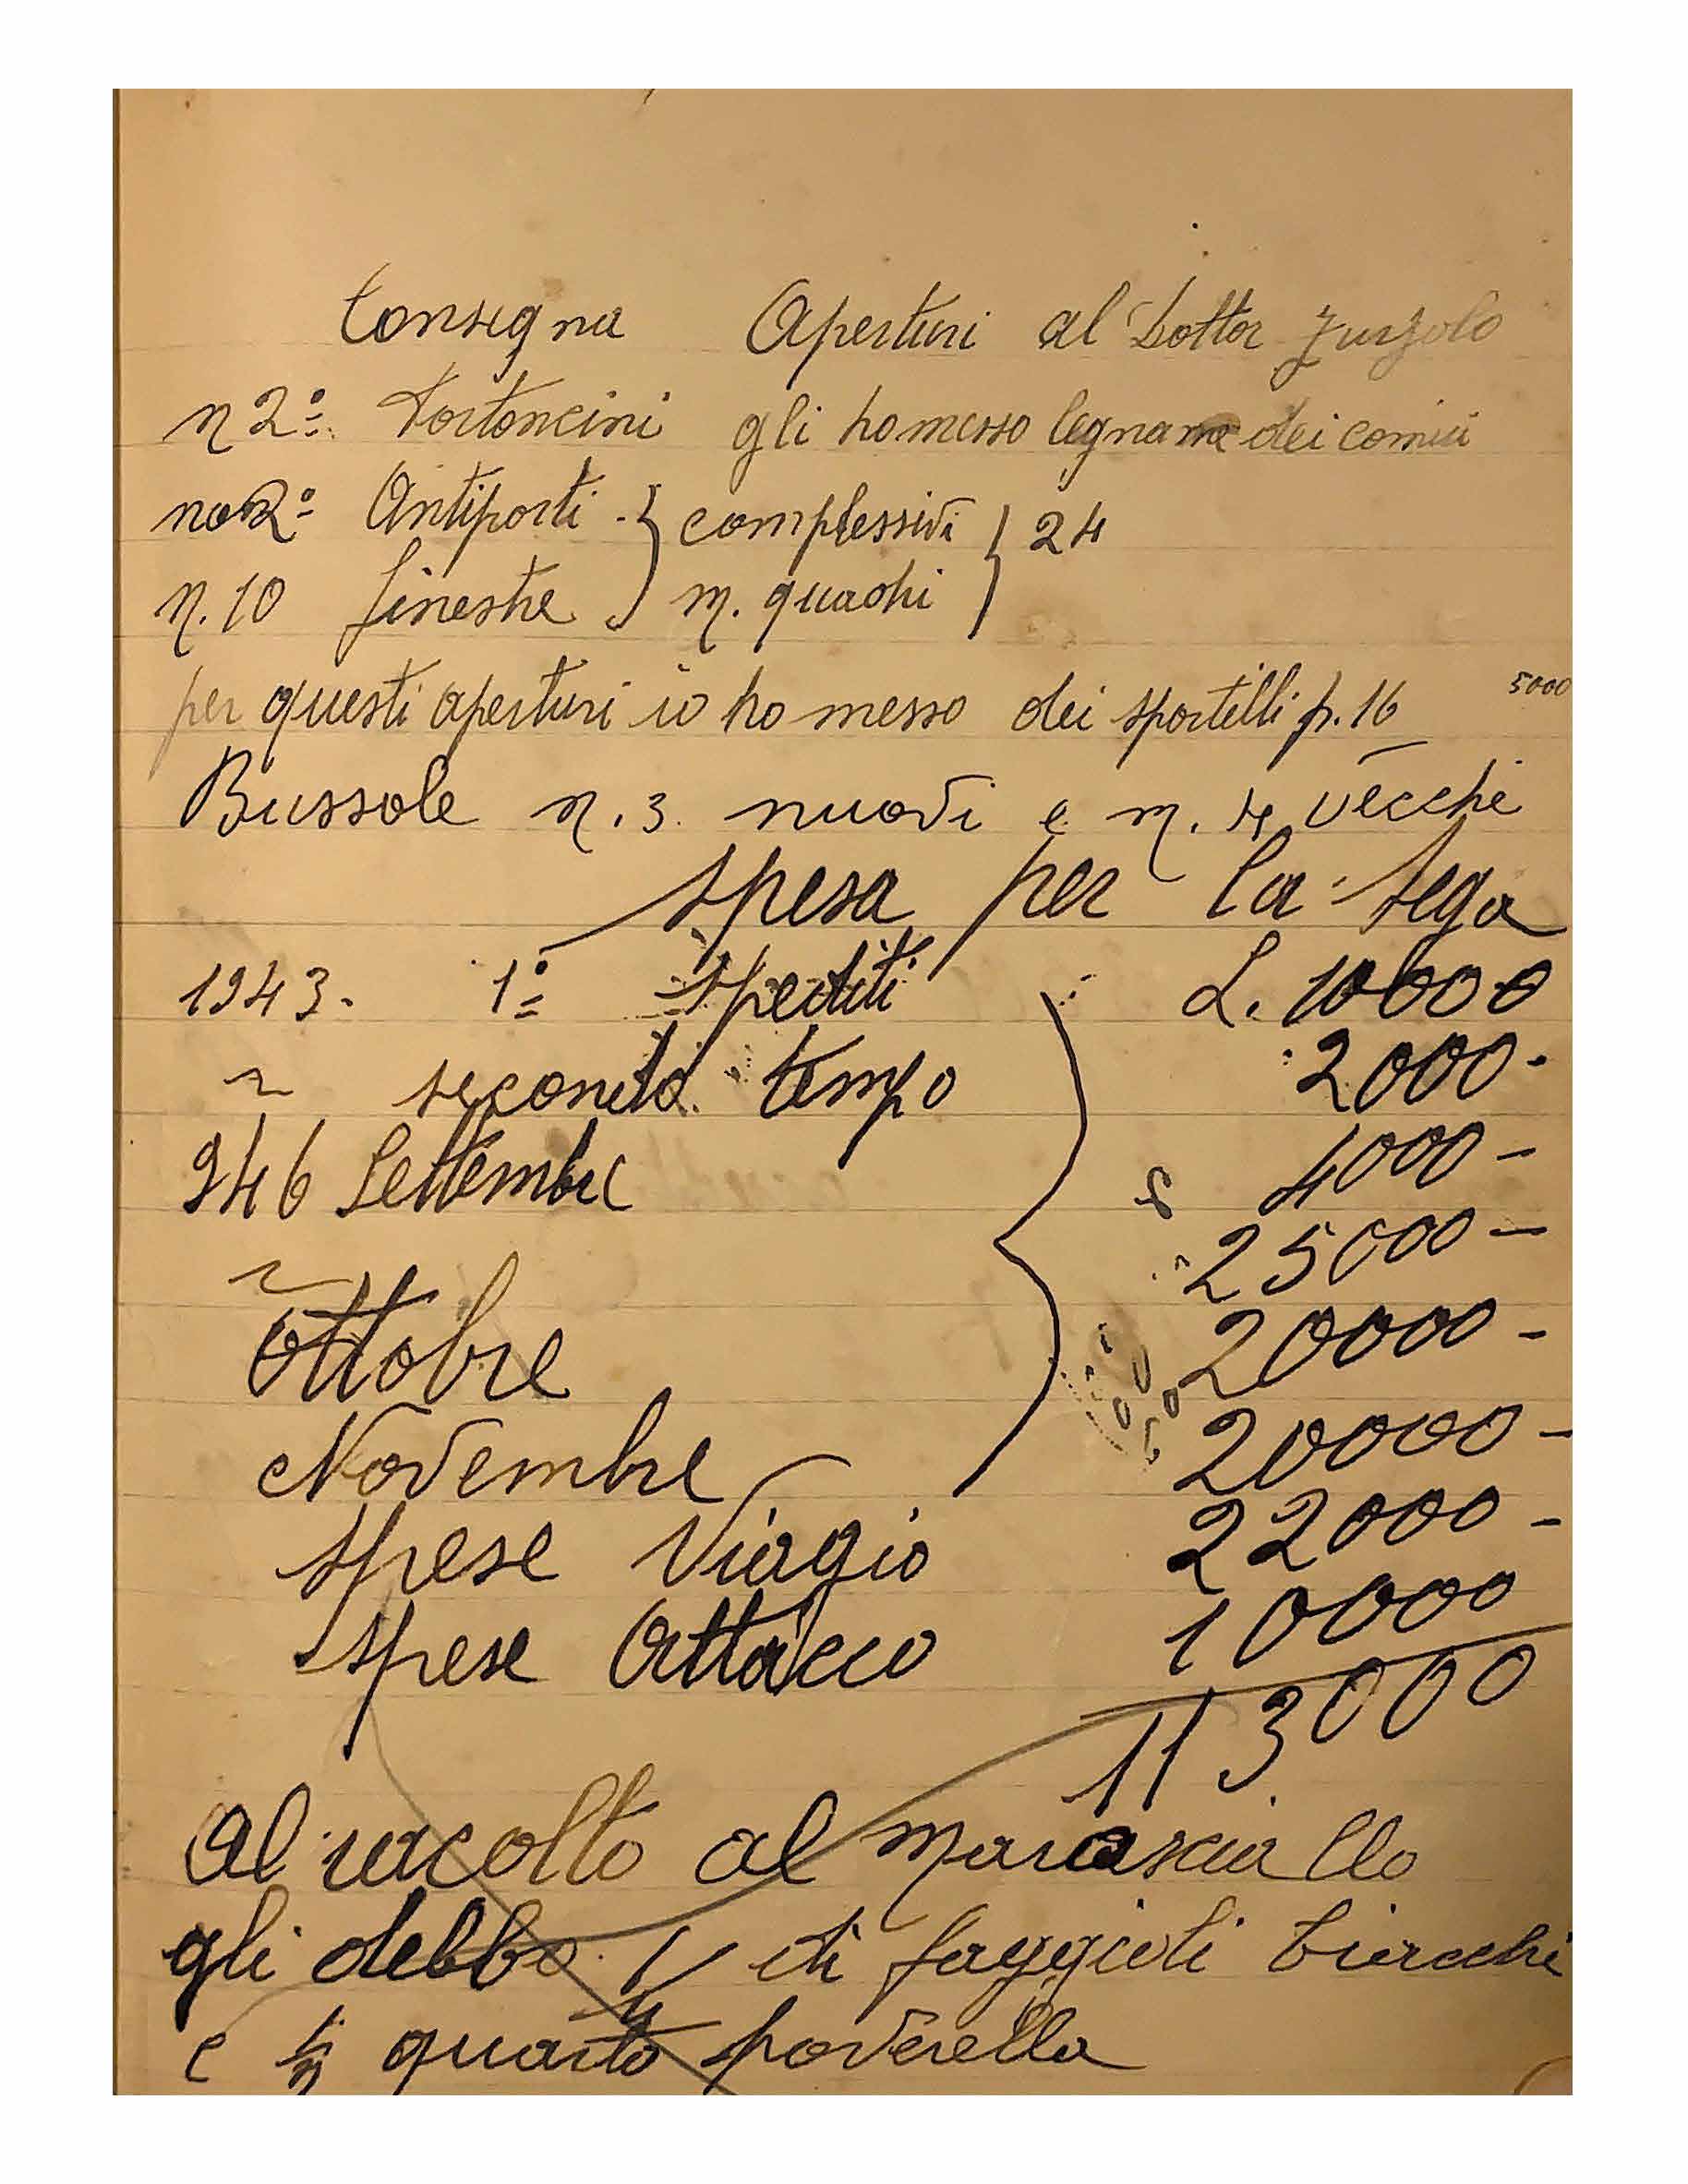 Consegna Aperturi al Dottor Zurzolo
n 2º Portoncini gli ho messo legname dei comici
no 2º Antiporti } complessivi } 24
n. 10 finestre } m. quadri }
per questi aperturi io ho messo dei sportelli p. 16 5000
Bussole n. 3 nuovi e n. 4 vecchi
spesa per la sega
1943. 1º spediti L. 10000
~ secondo tempo 2000-
946 Settembre 4000-
~ 25000-
Ottobre 20000-
Novembre 20000-
spese Viagio 22000-
spese Attacco 10000
113000
al racolto al marasciallo
gli debbo 1/4 di faggioli biacchi
e quarto poverella